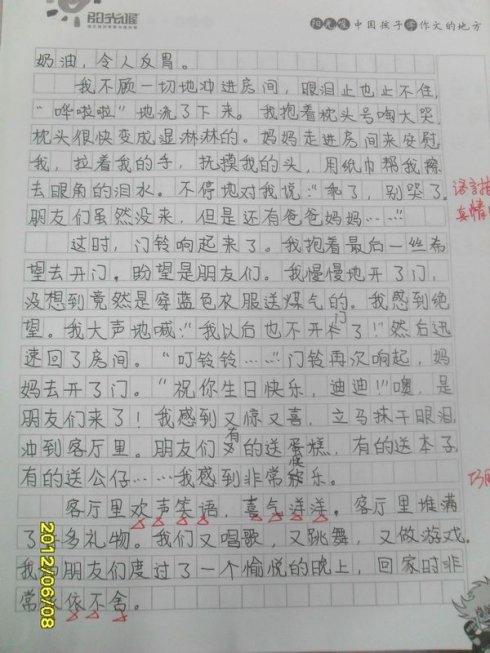 阳光喔
阳光喔 中国孩子学作文的地方
奶油，令人反胃。
我不顾一切地冲进房间，眼泪止也止不住，
“哗啦啦”地流了下来。我抱着枕头号啕大哭，
枕头很快变成湿淋淋的。妈妈走进房间来安慰
我，拉着我的手，抚摸我的头，用纸巾帮我擦
去眼角的泪水。不停地对我说：“乖了，别哭了。
朋友们虽然没来，但是还有爸爸妈妈……”
这时，门铃响起来了。我抱着最后一丝希
望去开门。盼望是朋友们。我慢慢地开了门，
没想到竟然是穿蓝色衣服送煤气的。我感到绝
望。我大声地喊：“我以后也不开门了！”然后迅
速回了房间。“叮铃铃……”门铃再次响起，妈
妈去开了门。“祝你生日快乐，迪迪！”噢，是
朋友们来了！我感到又惊又喜，立马抹干眼泪
冲到客厅里。朋友们有的送蛋糕，有的送本子，
有的送公仔……我感到非常快乐。
客厅里欢声笑语，喜气洋洋。客厅里堆满
了 多礼物。我们又唱歌，又跳舞，又做游戏。
我 朋友们度过了一个愉悦的晚上，回家时非
常 依不舍。
语言描
真情
巧用
2012/06/08